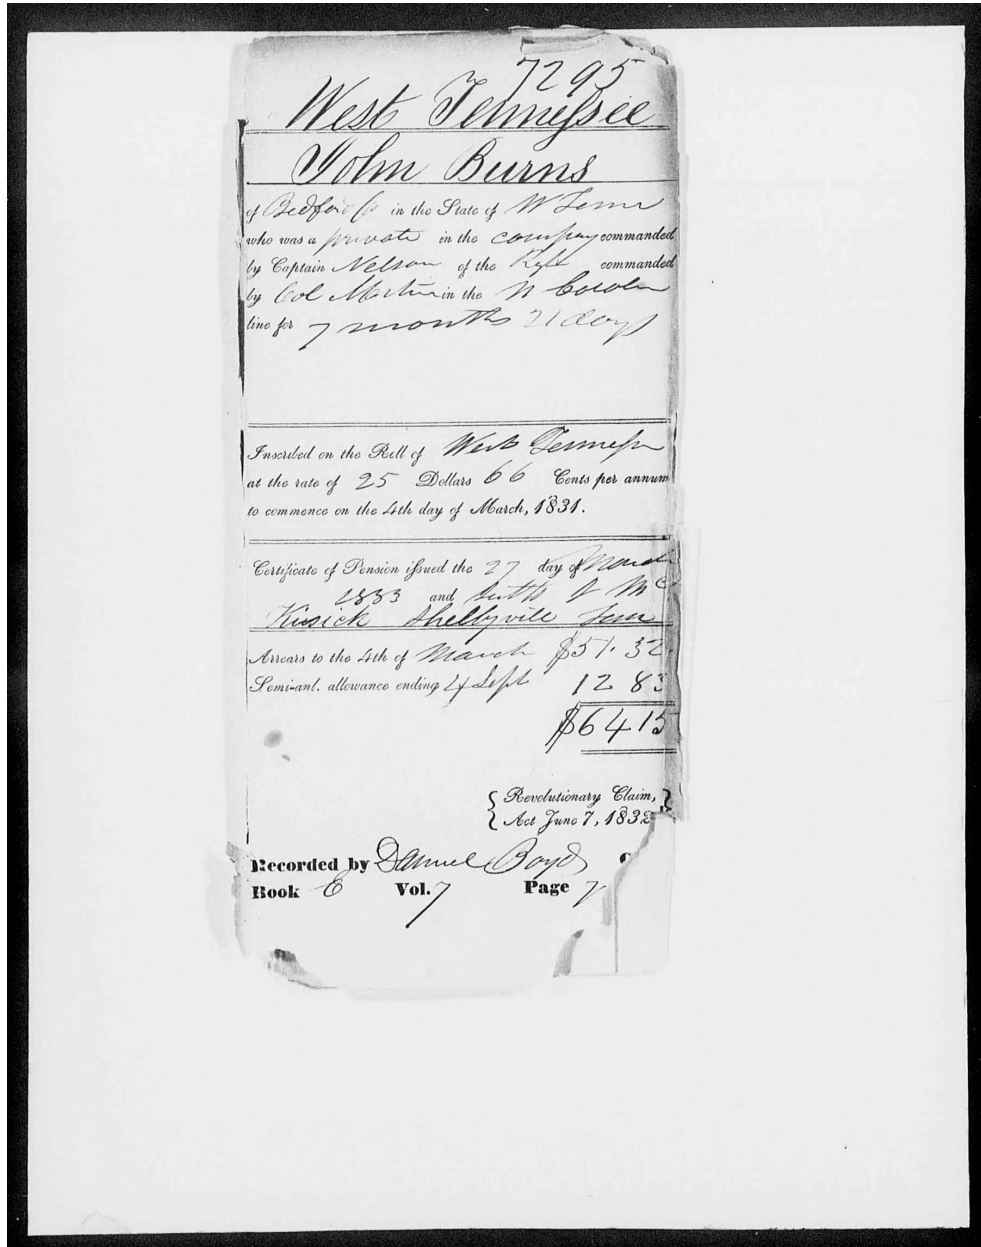 7295
West Tennessee
John Burns
of Bedford Co in the State of W Tenn
who was a private in the company commanded
by Captain Nelson of the Regt commanded
by Col Martin in the N Carolin
line for 7 months 21 days
Inscribed on the Roll of West Tennessee
at the rate of 25 Dollars 66 Cents per annum
to commence on the 4th day of March, 1831.
Certificate of Pension issued the 27 day of March
1833 and J Mc
Kisick Shelbyvile Tenn
Arrears to the 4th of March $51.32
Semi-anl. allowance ending 4 Sept 12 83
$64 15
Revolutionary Claim,
Act June 7, 1832
Recorded by Daniel Boyd
Book E Vol. 7 Page 7